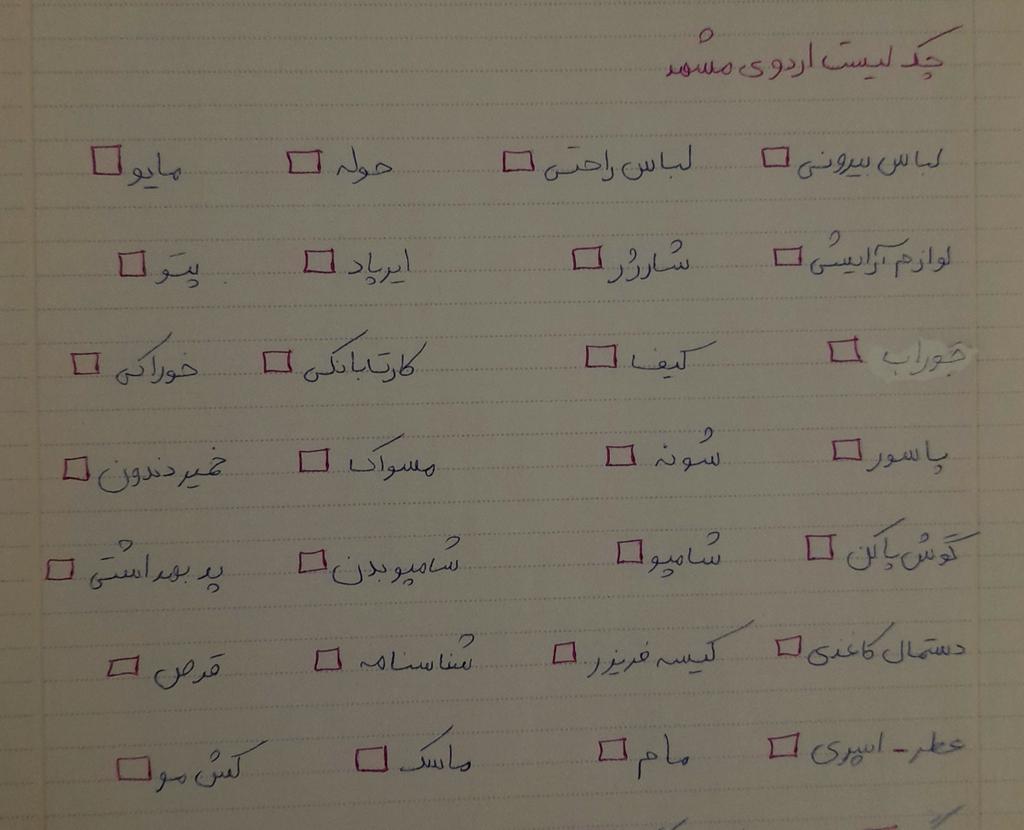 چک لیست اردوی مشهد
لباس بیرونی □ لباس راحتی □ حوله □ مایو □
لوازم آرایشی □ شارژر □ ایرپاد □ پتو □
جوراب □ کیف □ کارت بانکی □ خوراکی □
پاسور □ شونه □ مسواک □ خمیردندون □
گوش پاکن □ شامپو □ شامپو بدن □ پد بهداشتی □
دستمال کاغذی □ کیسه فریزر □ شناسنامه □ قرص □
عطر - اسپری □ مام □ ماسک □ کش مو □